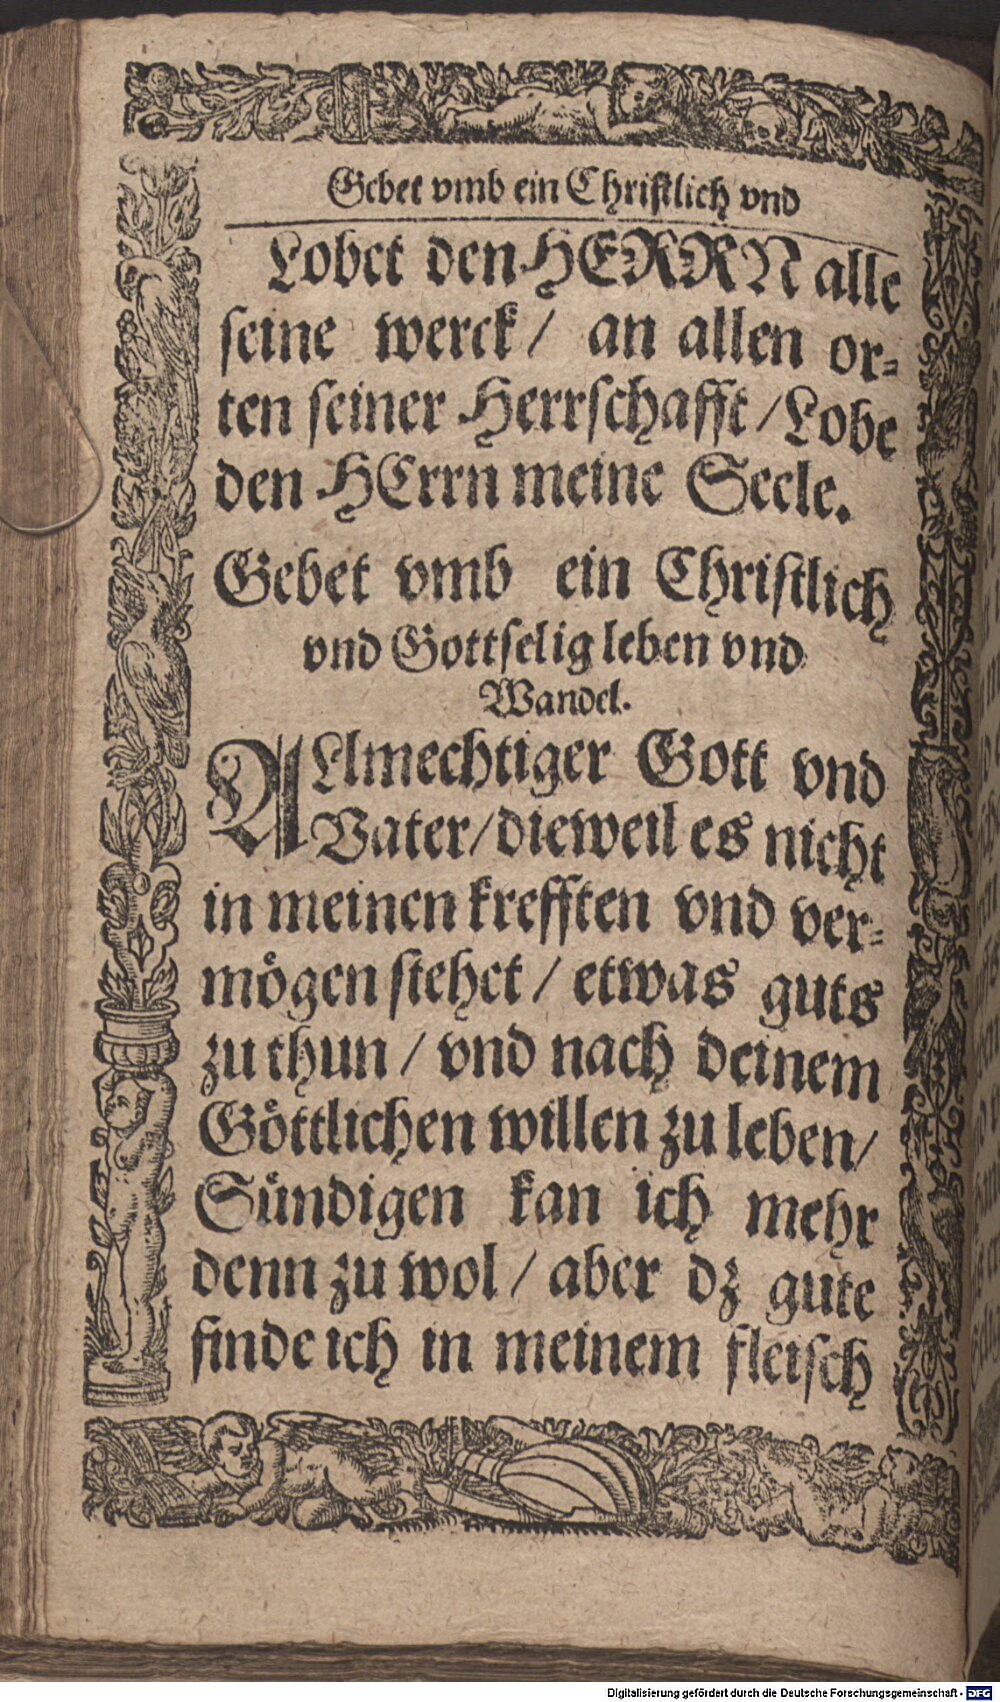 Gebet vmb ein Chriſtlich vnd
Lobet den HERRN alle
ſeine werck / an allen or-
ten ſeiner Herrſchafft / Lobe
den HErrn meine Seele.
Gebet vmb ein Chriſtlich
vnd Gottſelig leben vnd
Wandel.
ALlmechtiger Gott vnd
Vater / dieweil es nicht
in meinen krefften vnd ver-
moͤgen ſtehet / etwas guts
zu thun / vnd nach deinem
Goͤttlichen willen zu leben /
Suͤndigen kan ich mehr
denn zu wol / aber dz gute
finde ich in meinem fleiſch
Digitalisierung gefördert durch die Deutsche Forschungsgemeinschaft - DFG